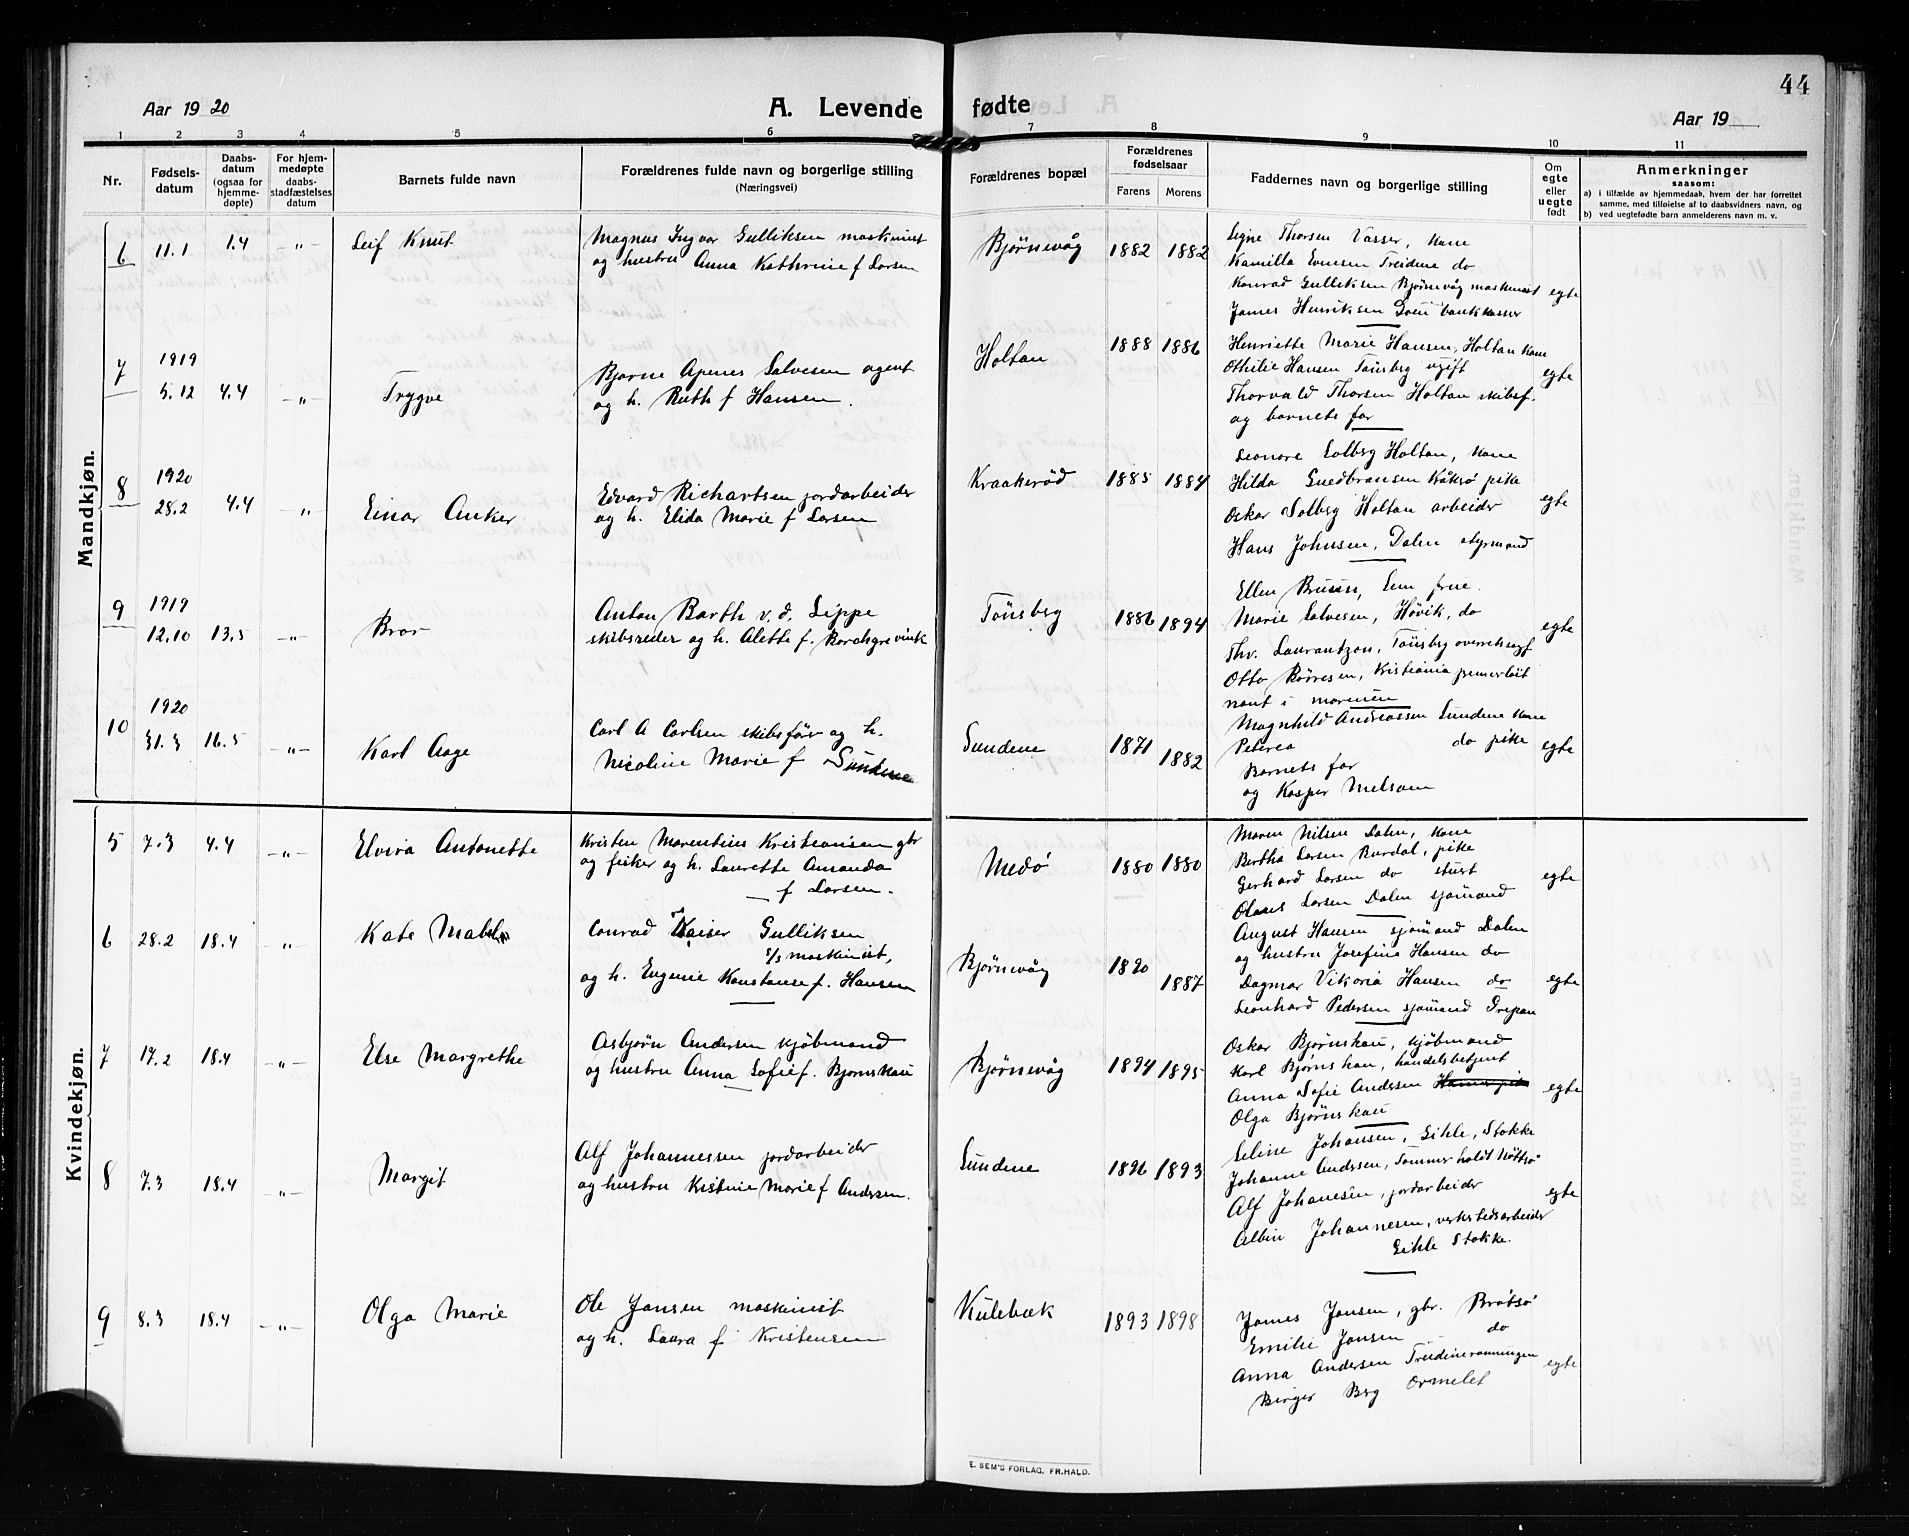 44
Aar 1920
A. Levende fødte
Aar 19
1 2 3 4 5 6 7 8 9 10 11
Nr.
Fødsels-
datum
Daabs-
datum
(ogsaa for
hjemme-
døpte)
For hjem-
medøpte
daabs-
stadfæstelses
datum
Barnets fulde navn
Forældrenes fulde navn og borgerlige stilling
(Næringsvei)
Forældrenes bopæl
Forældrenes
fødselsaar
Farens Morens
Faddernes navn og borgerlige stilling
Om
egte
eller
uegte
født
Anmerkninger
saasom:
a) i tilfælde av hjemmedaab, hvem der har forrettet
samme, med tilføielse af to daabsvidners navn, og
b) ved uegtefødte barn anmelderens navn m. v.
Mandkjøn.
6 11.1 1.4 -„- Leif Knut
Magnus Ingvar Gulliksen maskinist
og hustru Anna Kathrine f Larsen
Bjørnevåg 1882 1882
Signe Thorsen Vasser, kone
Kamilla Evensen Treidene do
Konrad Gulliksen Bjørnevåg maskinist
James Henriksen bankkasser
egte
7 1919
5.12 4.4 -„- Trygve
Bjarne Apenes Salvesen agent
og h. Ruth f Hansen.
Holtan 1888 1886
Henriette Marie Hansen, Holtan kone
Othilie Hansen Tönsberg ugift
Thorvald Thorsen Holtan skibsf.
og barnets far
egte
8 1920
28.2 4.4 -„- Einar Anker
Edvard Richartsen jordarbeider
og h. Elida Marie f Larsen
Kraakeröd 1885 1884
Leonore Solberg Holtan, kone
Hilda Guldbransen pike
Oskar Solberg Holtan arbeider
Hans Johnsen, Dalen styrmand
egte
9 1919
12.10 13.5 -„- Bror
Anton Barth v. d. Lippe
skibsreder og h. Alethe f. Borchgrevink
Tönsberg 1886 1894
Ellen Bruun, Sem frue.
Marie Salvesen, Hövik, do
Thv. Laurantzon, Tönsberg overretssagf
Otto Börresen, Kristiania premierlöit
nant i marinen
egte
10 1920
31.3 16.5 -„- Karl Aage
Carl A Carlsen skibsförer og h.
Nicoline Marie f Sundene
Sundene 1871 1882
Magnhild Andreassen Sundene kone
Peterea do pike
Barnets far
og Kasper Melsom
egte
Kvindekjøn.
5 7.3 4.4 -„- Elvira Antonette
Kristen Marentius Kristiansen gbr
og fisker og h. Laurette Amanda
f Larsen.
Medö 1880 1880
Maren Nilsen Dalen, kone
Bertha Larsen Burdal, pike
Gerhard Larsen do
Olaus Larsen Dalen sjömand
egte
6 28.2 18.4 „ Kate Mabel
Conrad Kaiser Gulliksen
s/s maskinist,
og h. Eugenie Konstanse f. Hansen
Bjørnevåg 1890 1887
August Hansen sjömand Dalen
og hustru Josefine Hansen do
Dagmar Viktoria Hansen do
Leonhard Pedersen sjömand Grepan
egte
7 17.2 18.4 -„- Else Margrethe
Asbjörn Andersen kjöbmand
og hustru Anna Sofie f. Bjørnskau
Bjørnevåg 1894 1895
Oskar Bjørnskau, kjöbmand
Karl Bjørnskau, handelsbetjent
Anna Sofie Andersen
Olga Bjørnskau
egte
8 7.3 18.4 -„- Margit
Alf Johannessen jordarbeider
og hustru Kristine Marie f Andersen.
Sundene 1896 1893
Seline Johansen, Gihle, Stokke
Johanne Andersen, Sommerholdt Nöttsö
Alf Johanesen, jordarbeider
Albin Johannesen, verkstedsarbeider
Gihle Stokke.
egte
9 8.3 18.4 -„- Olga Marie
Ole Jansen maskinist
og h. Laura f Kristensen
Kulebæk 1893 1898
James Jansen, gbr. Bråtsö
Emilie Jansen do
Anna Andersen
Birger Berg Ormelet
egte
E. SEM'S FORLAG. FR.HALD.